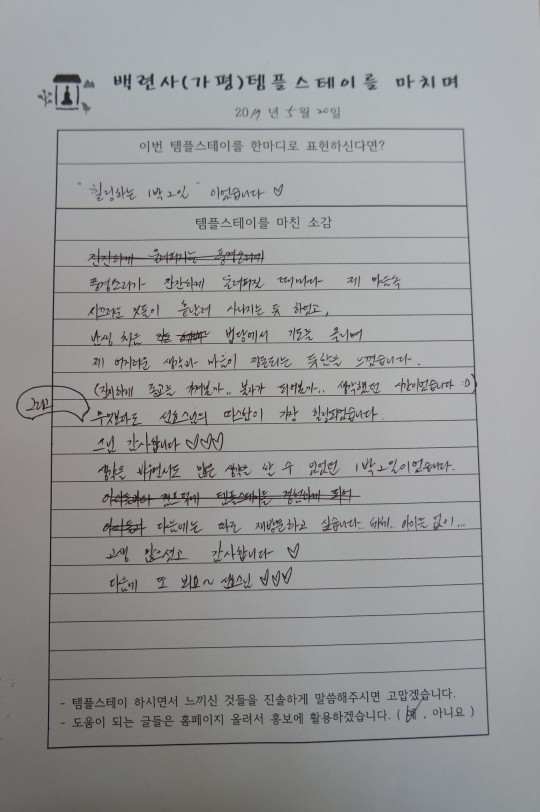 백련사(가평)템플스테이를 마치며
2019 년 5 월 20 일
이번 템플스테이를 한마디로 표현하신다면?
"힐링하는 1박 2일" 이었습니다 ♡
템플스테이를 마친 소감
잔잔하게 울려퍼지는 풍경소리에
풍경소리가 잔잔하게 들려퍼질 때마다 제 마음속
시끄러운 것들이 사라지는 듯 하였고,
난생 처음 법당에서 기도를 올리며
제 어지러운 생각과 마음이 정돈되는 듯함을 느꼈습니다.
(진지하게 종교를 가져볼까.. 불자가 되어볼까.. 생각했던 시간이었습니다 :))
그리고 무엇보다도 선효스님의 따스함이 가장 힐링되었습니다.
스님 감사합니다 ♡♡♡
생각을 비우면서도 많은 생각을 할 수 있었던 1박 2일이었습니다.
템플스테이를 경험하게 되어
다음에는 따로 재방문하고 싶습니다. 아이들 없이...
고생 많으셨고 감사합니다 ♡
다음에 또 봬요~ 선효스님 ♡♡♡
- 템플스테이 하시면서 느끼신 것들을 진솔하게 말씀해주시면 고맙겠습니다.
- 도움이 되는 글들은 홈페이지 올려서 홍보에 활용하겠습니다. ( 예 , 아니요 )